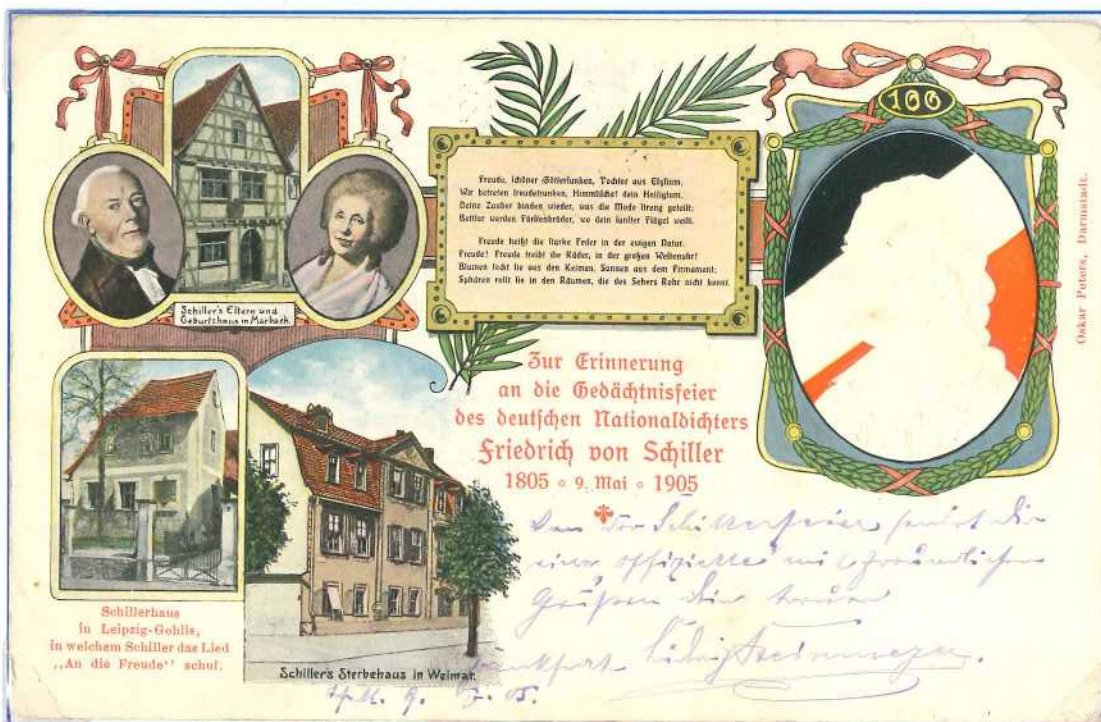 100
Freude, schöner Götterfunken, Tochter aus Elysium,
Wir betreten freudetrunken, Himmlische! dein Heiligtum.
Deine Zauber binden wieder, was die Mode streng geteilt;
Bettler werden Fürstenbrüder, wo dein sanfter Flügel weilt.
Freude heißt die starke Feder in der ewigen Natur.
Freude! Freude treibt die Räder, in der großen Weltenuhr!
Blumen lockt sie aus den Keimen, Sonnen aus dem Firmament;
Sphären rollt sie in den Räumen, die des Sehers Rohr nicht kennt.
Schiller's Eltern und
Geburtshaus in Marbach.
Zur Erinnerung
an die Gedächtnisfeier
des deutschen Nationaldichters
Friedrich von Schiller
1805 ∘ 9. Mai ∘ 1905
Schillerhaus
in Leipzig-Gohlis,
in welchem Schiller das Lied
„An die Freude“ schuf.
Schiller's Sterbehaus in Weimar.
Oskar Peters, Darmstadt.
Von der Schillerfeier sendet die
eine offizielle mit freundlichen
Grüßen
Frankfurt